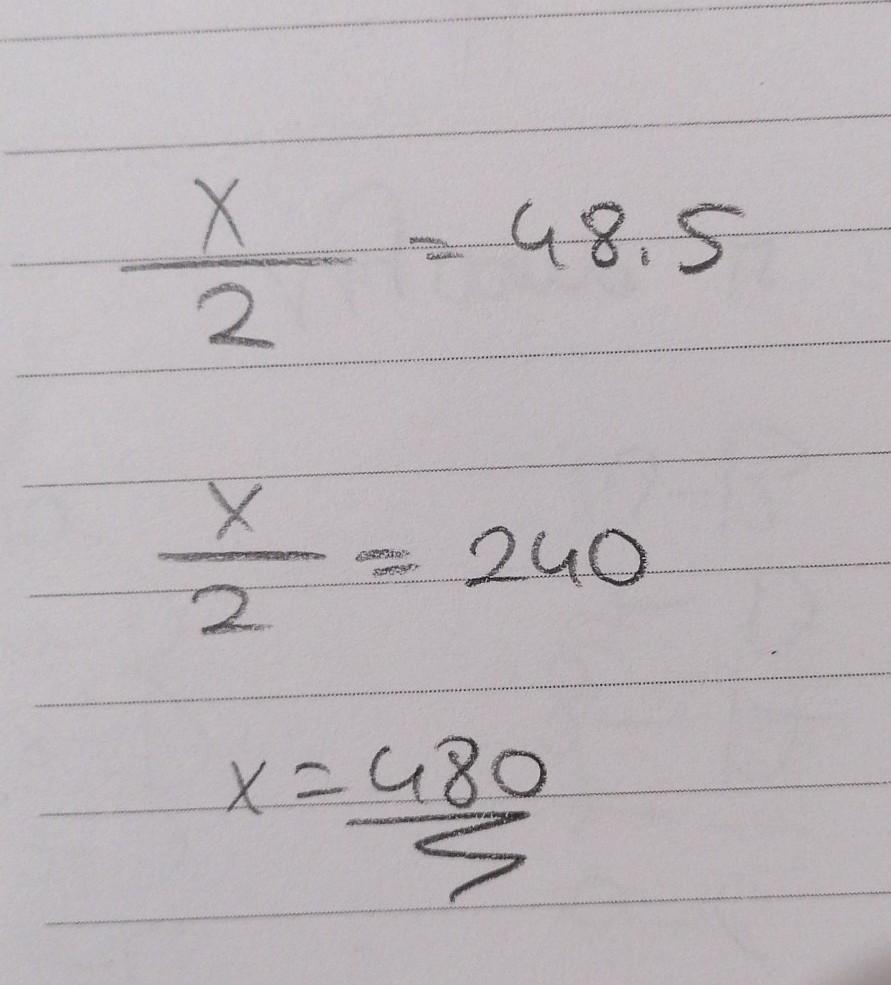 x/2 = 48.5
x/2 = 240
x = 480